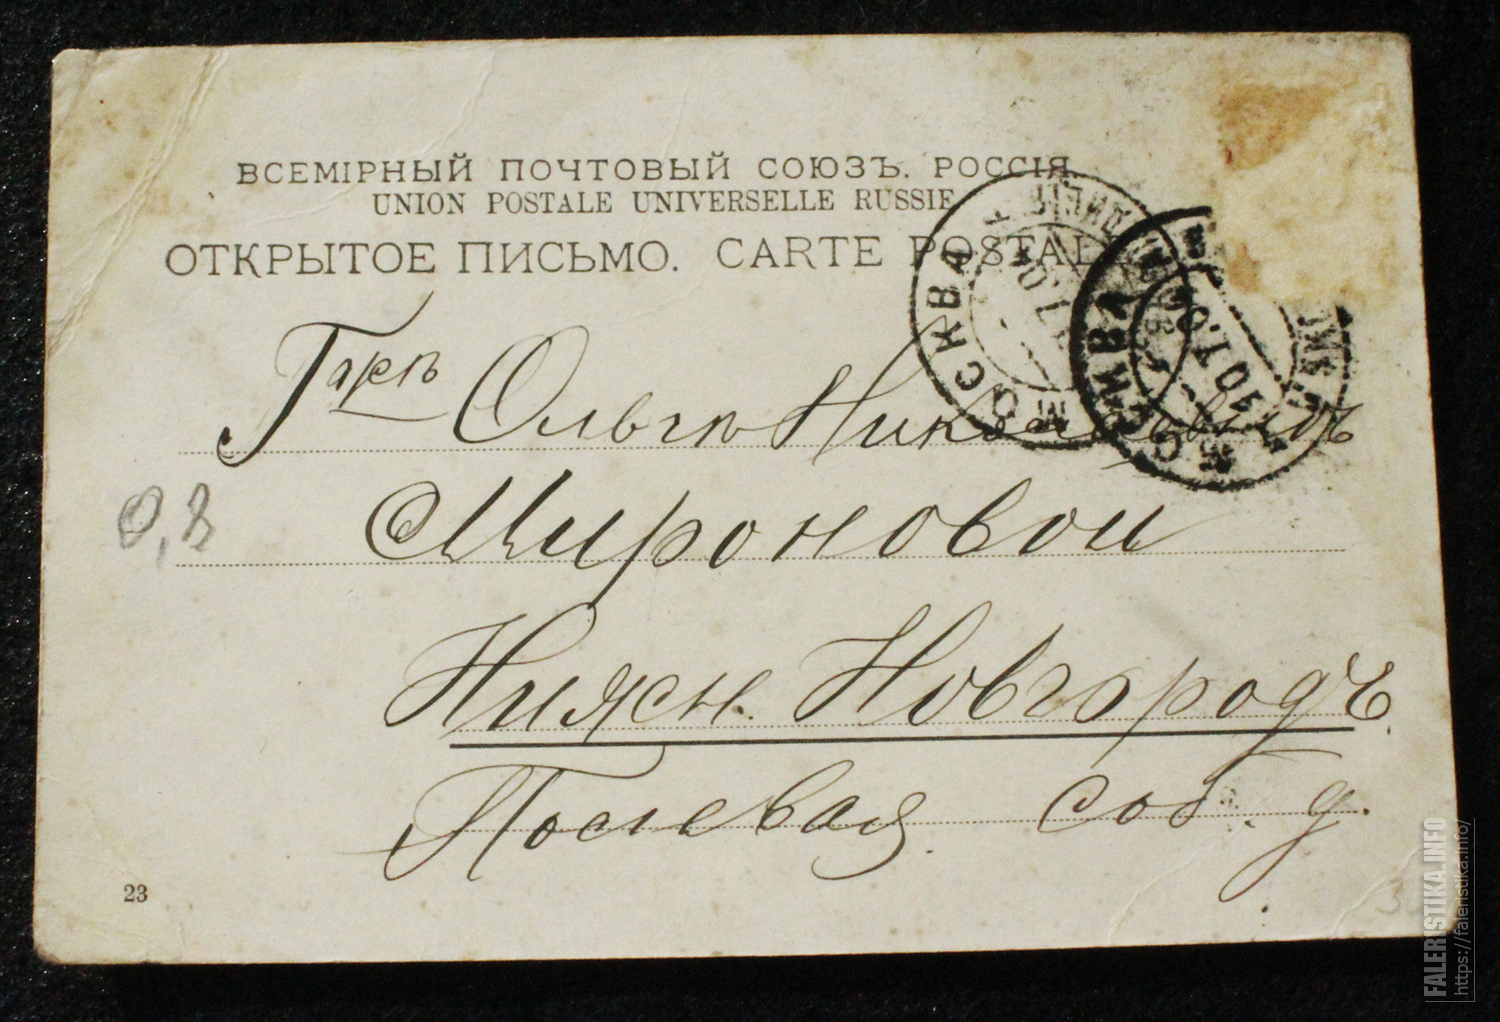 ВСЕМІРНЫЙ ПОЧТОВЫЙ СОЮЗЪ. РОССІЯ.
UNION POSTALE UNIVERSELLE RUSSIE
ОТКРЫТОЕ ПИСЬМО. CARTE POSTAL
МОСКВА
МОСКВА
Ольгѣ Николаевнѣ
Мироновой
Нижн. Новгородъ.
Полевая. соб. д.
23
FALERISTIKA.INFO
https://faleristika.info/